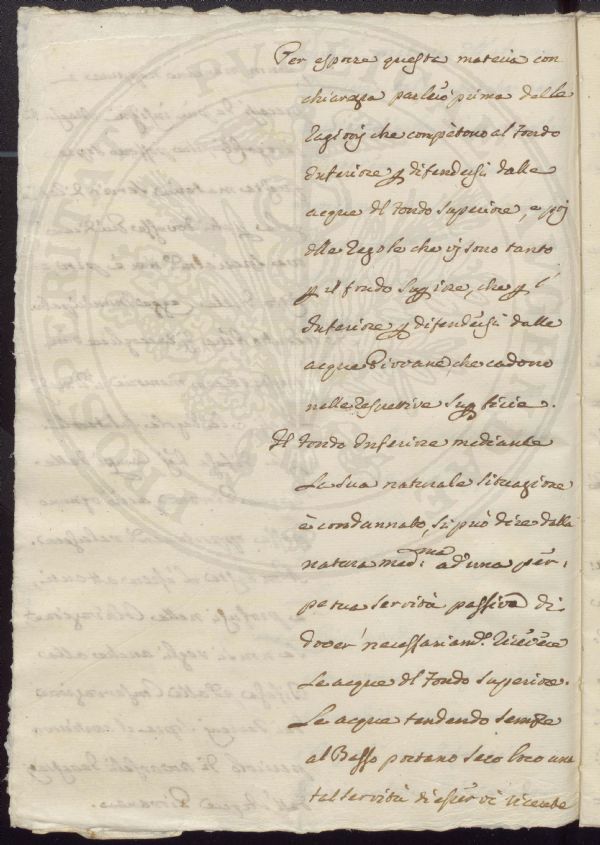 Per esporre questa materia con
chiarezza parlerò prima delle
ragioni che compètono al Fondo
Inferiore p difendersi dalle
acque del Fondo Superiore, e poi
delle regole che vi sono tanto
p il fondo Supriore, che p l'
Inferiore p difendersi dalle
acque Piovane, che cadono
nelle respettive Supficie.
Il Fondo Inferiore mediante
La sua naturale situazione
è condannato, si può dire dalla
natura med:ma ad'una per:
petua servitù passiva di
dover' necessariam.e ricevere
Le acque del Fondo Superiore.
Le acque tendendo sempre
al Basso portano seco loro una
tal servitù di esser vi ricevute